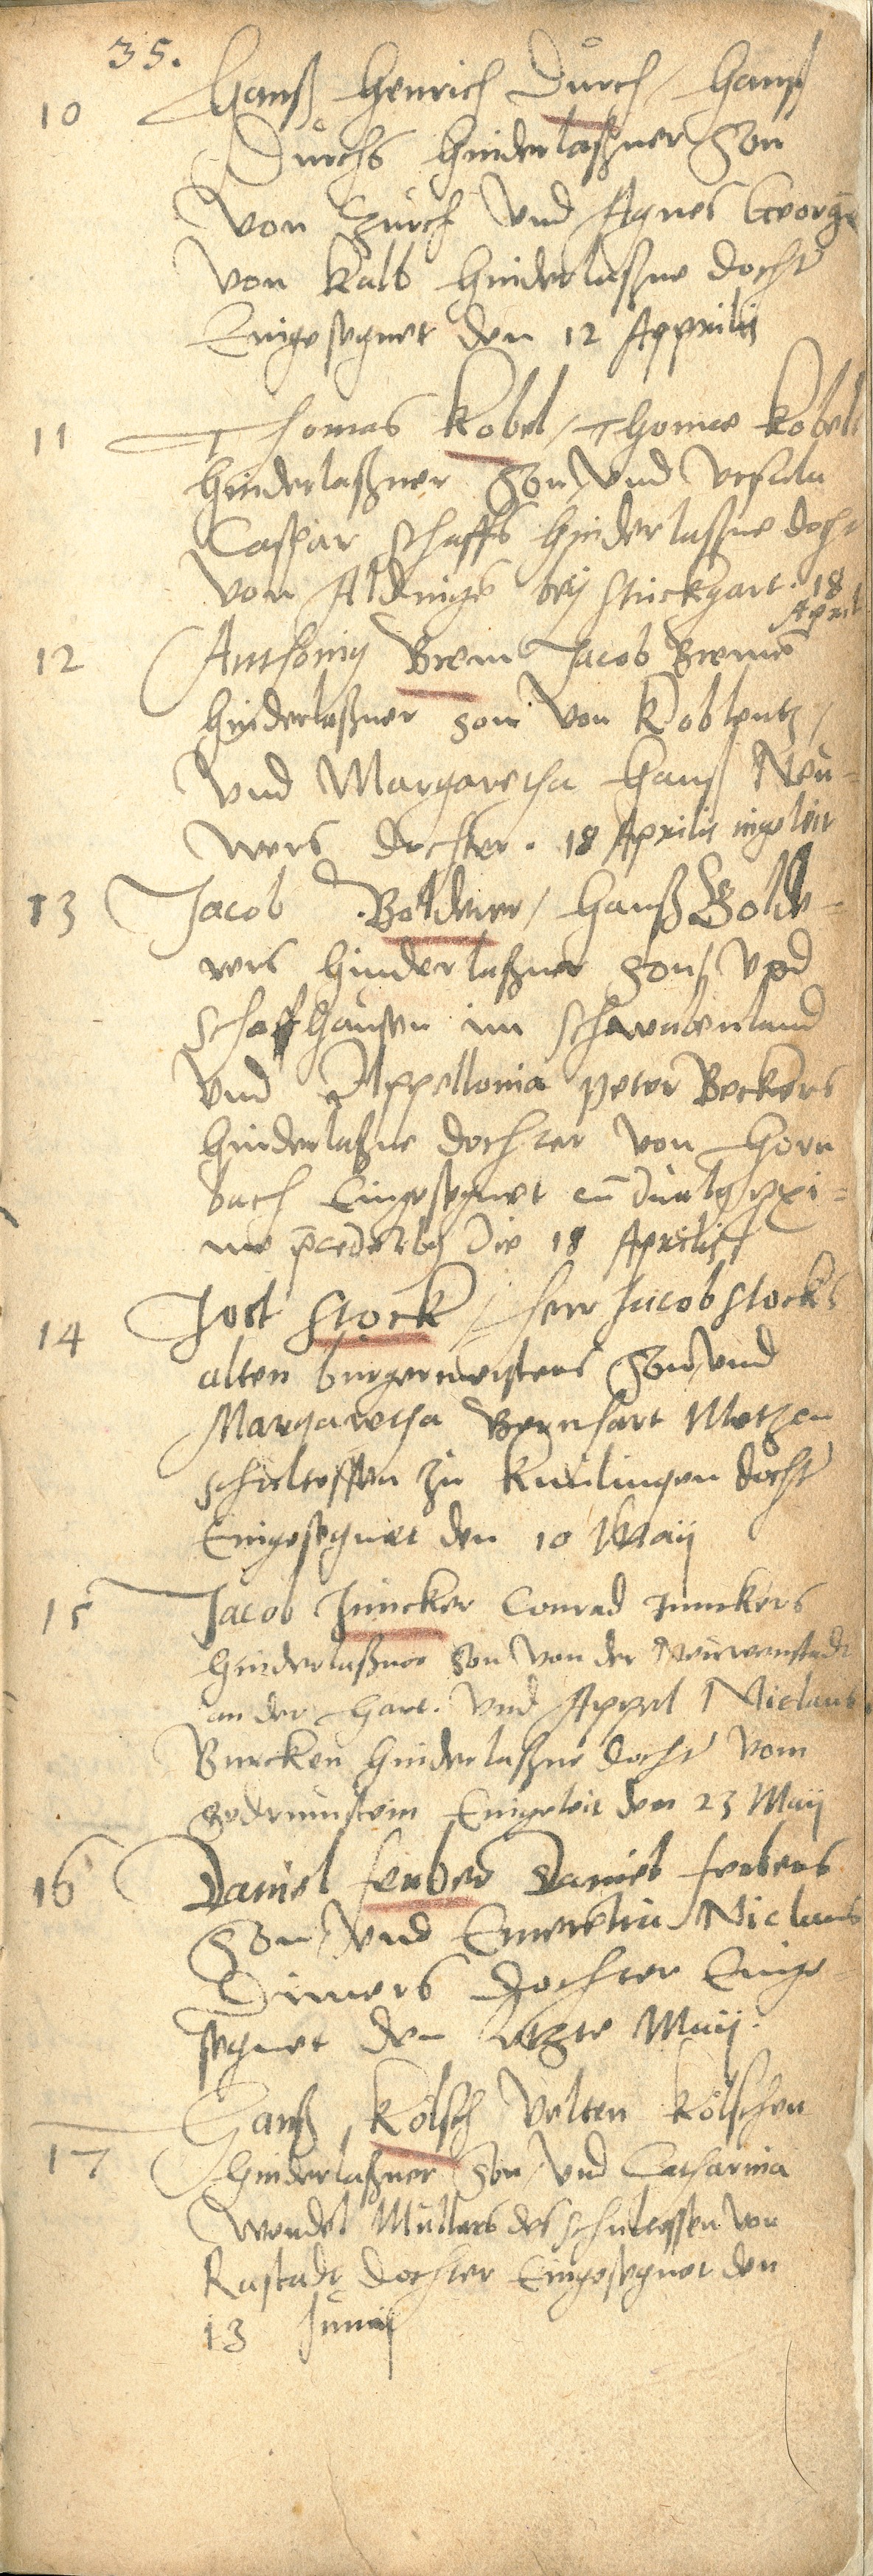 35.
10 Hanß Henrich Dürch / Hanß
Dürchs hinderlaßner Son
von Zürch vnd Agnes Georg
von Kalb hinderlaßne docht
Eingesegnet den 12 Apprilis
11 Thomas Kobel / Thomae Kobels
hinderlaßner Son vnd Vrsula
Caspar Schaffs hinderlaßne docht
von Aldinge beÿ Stuckgart. 18
April
12 Anthoniÿ Brem Jacob Breme
hinderlaßner son von Koblentz /
vnd Margaretha Hanß Neu-
wers dochter. 18 Aprilis ingeleit
13 Jacob Bolderer / Hanß Bolde-
rers hinderlaßner Son / vnd
Schaffhausen im Schwabenland
vnd Appellonia Peter Beckers
hinderlaßne dochter von Horn
bach Eingesegnet cū duabꝫ pxi-
me die 18 Aprilis
14 Jost Stock / herr Jacob Stocks
alten burgermeisters Son vnd
Margaretha Bernhart Metzen
schultessen zu Knilingen docht
Eingesegnet den 10 Maij
15 Jacob Juncker Conrad Junckers
hinderlaßner Son von der Neuwenstadt
an der Hart. vnd Appel Niclaus
Burcken hinderlaßne docht vom
Eingeleit den 23 Maij
16 Daniel ferber Daniel ferbers
Son vnd Niclaus
Dimers Dochter Einge-
segnet den letzte Maij.
17 Hanß Kölsch Velten Kölschen
hinderlaßner Son vnd Catharina
Wendel Müllers des schultessen von
Rastadt dochter Eingesegnet den
13 Junij